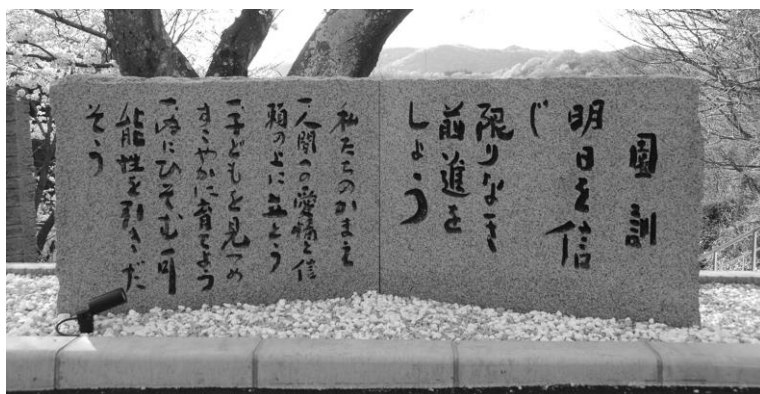 園訓
明日を信
じ
限りなき
前進を
しよう
私たちのかまえ
一人間への愛情と信
頼の上に立とう
一子どもを見つめ
すこやかに育てよう
にひそむ可
能性を引きだ
そう